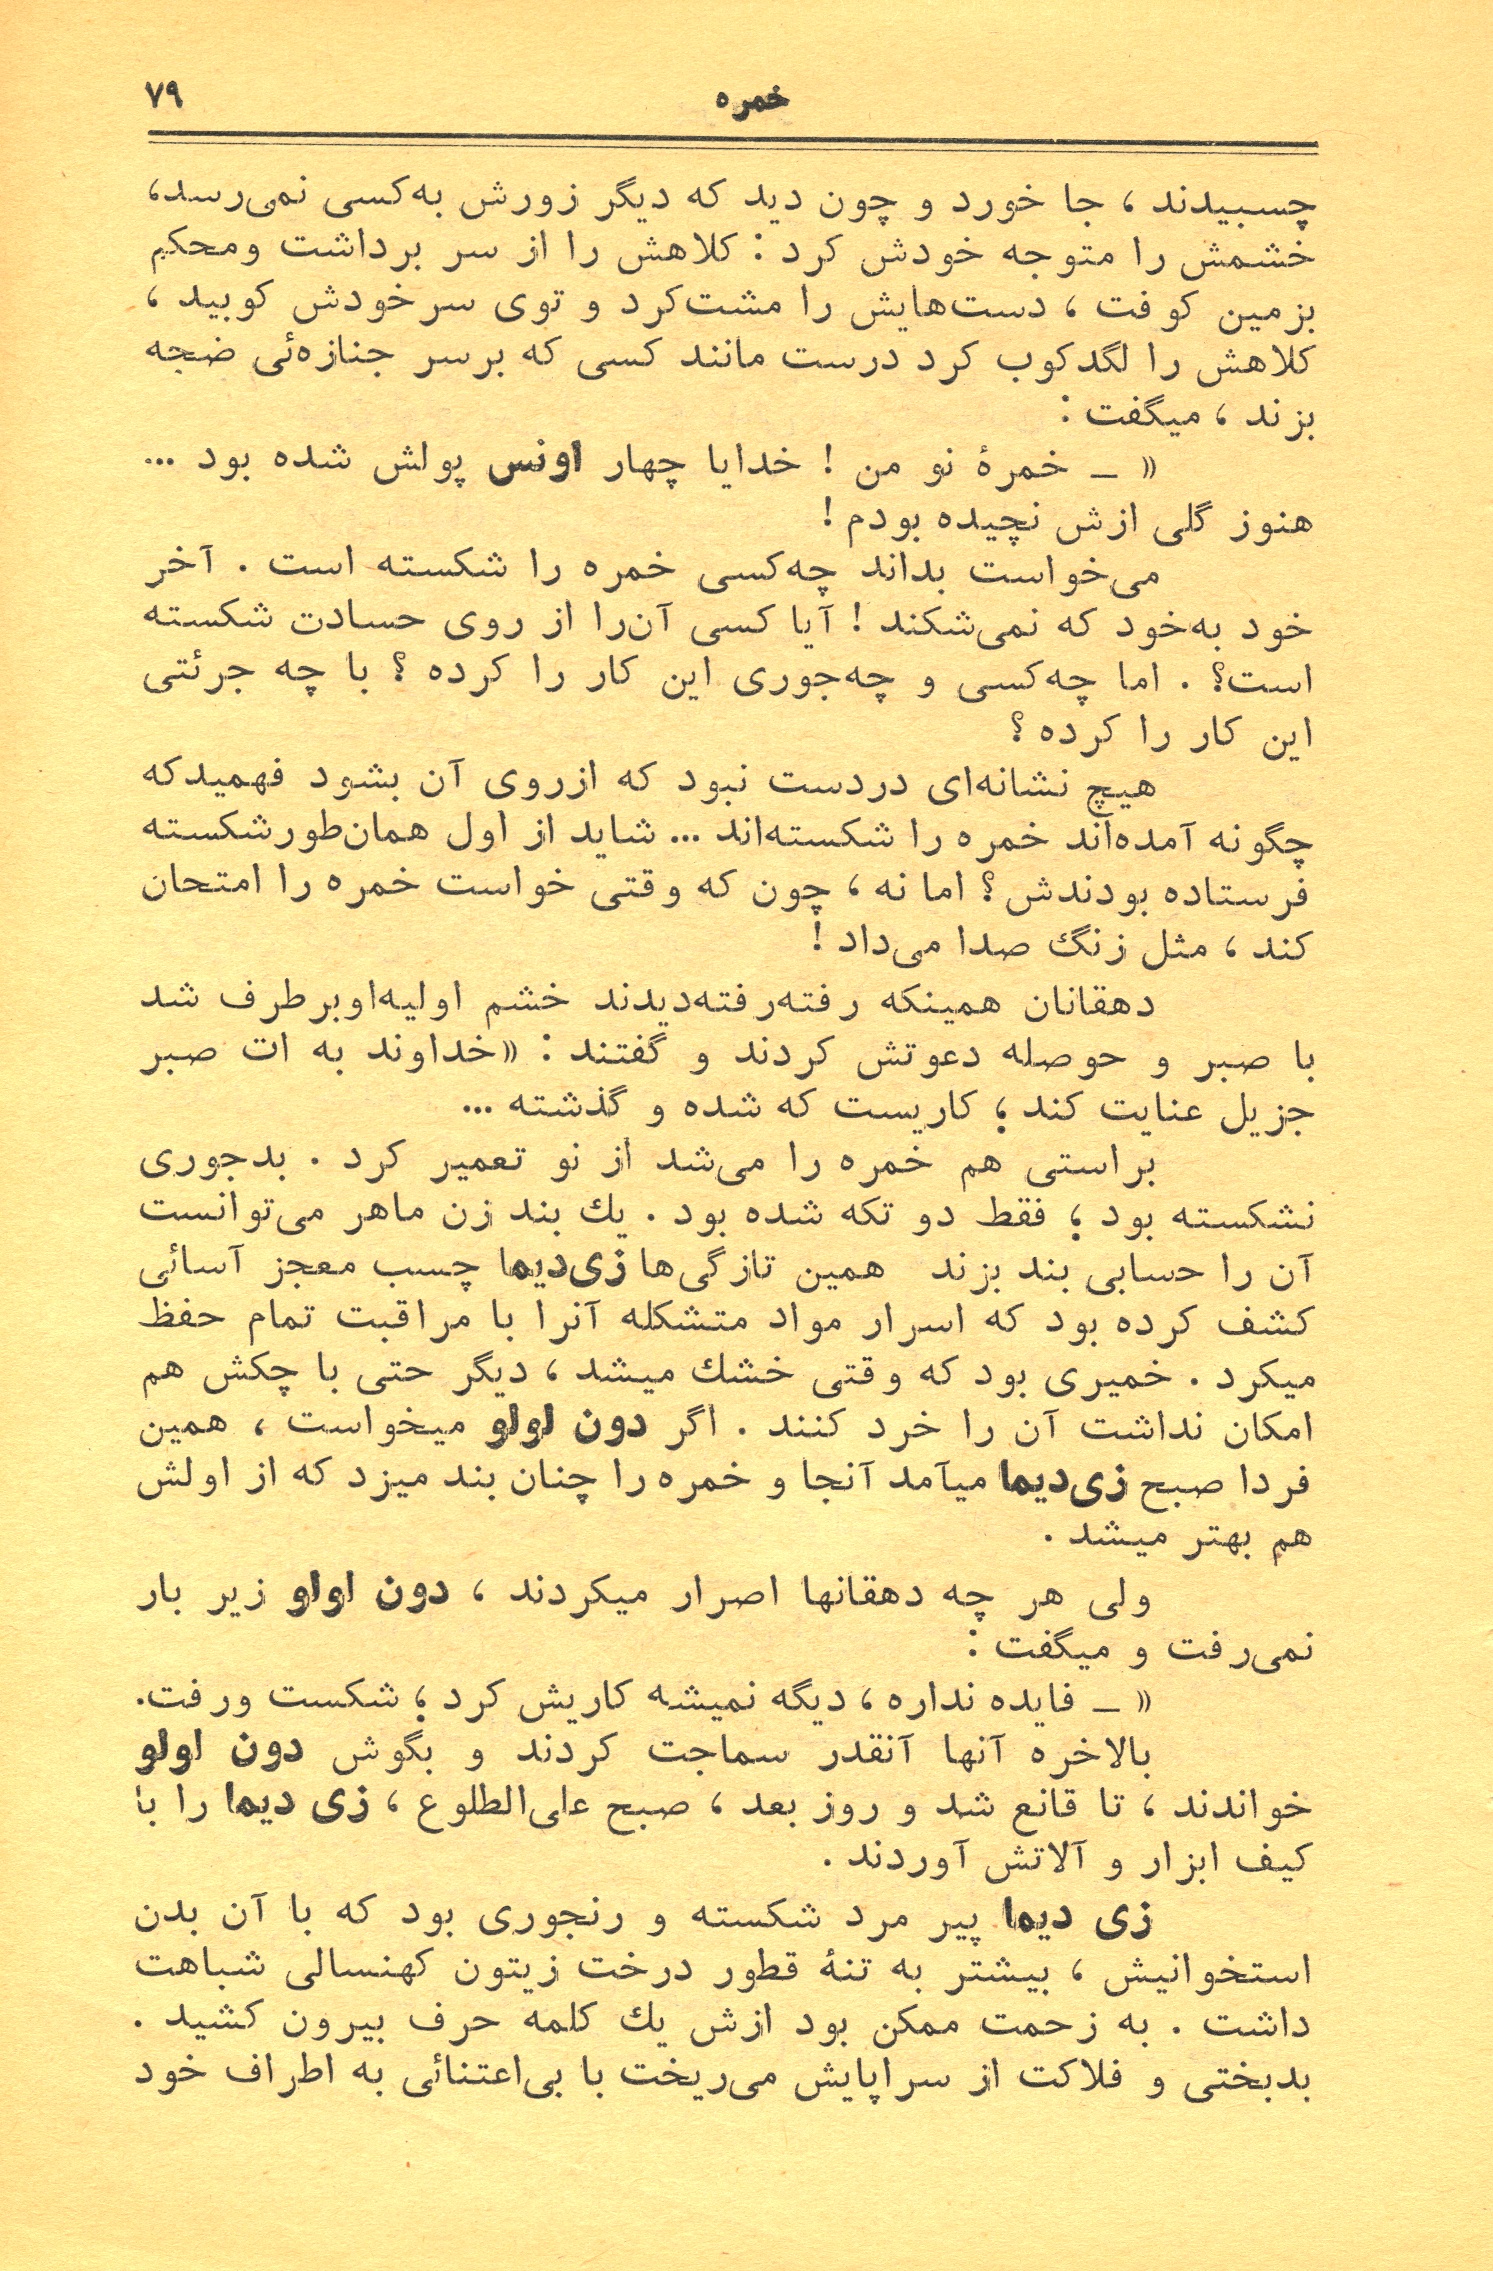 خمره ۷۹
چسبیدند ، جا خورد و چون دید که دیگر زورش به‌کسی نمی‌رسد،
خشمش را متوجه خودش کرد : کلاهش را از سر برداشت ومحکم
بزمین کوفت ، دست‌هایش را مشت‌کرد و توی سرخودش کوبید ،
کلاهش را لگدکوب کرد درست مانند کسی که برسر جنازه‌ئی ضجه
بزند ، میگفت :
« ـ خمرهٔ نو من ! خدایا چهار اونس پولش شده بود ...
هنوز گلی ازش نچیده بودم !
می‌خواست بداند چه‌کسی خمره را شکسته است . آخر
خود به‌خود که نمی‌شکند ! آیا کسی آن‌را از روی حسادت شکسته
است؟ . اما چه‌کسی و چه‌جوری این کار را کرده ؟ با چه جرئتی
این کار را کرده ؟
هیچ نشانه‌ای دردست نبود که ازروی آن بشود فهمیدکه
چگونه آمده‌اند خمره را شکسته‌اند ... شاید از اول همان‌طورشکسته
فرستاده بودندش ؟ اما نه ، چون که وقتی خواست خمره را امتحان
کند ، مثل زنگ صدا می‌داد !
دهقانان همینکه رفته‌رفته‌دیدند خشم اولیه‌اوبرطرف شد
با صبر و حوصله دعوتش کردند و گفتند : «خداوند به ات صبر
جزیل عنایت کند ؛ کاریست که شده و گذشته ...
براستی هم خمره را می‌شد از نو تعمیر کرد . بدجوری
نشکسته بود ؛ فقط دو تکه شده بود . یك بند زن ماهر می‌توانست
آن را حسابی بند بزند همین تازگی‌ها زی‌دیما چسب معجز آسائی
کشف کرده بود که اسرار مواد متشکله آنرا با مراقبت تمام حفظ
میکرد . خمیری بود که وقتی خشك میشد ، دیگر حتی با چکش هم
امکان نداشت آن را خرد کنند . اگر دون لولو میخواست ، همین
فردا صبح زی‌دیما میآمد آنجا و خمره را چنان بند میزد که از اولش
هم بهتر میشد .
ولی هر چه دهقانها اصرار میکردند ، دون لولو زیر بار
نمی‌رفت و میگفت :
« ـ فایده نداره ، دیگه نمیشه کاریش کرد ؛ شکست ورفت.
بالاخره آنها آنقدر سماجت کردند و بگوش دون لولو
خواندند ، تا قانع شد و روز بعد ، صبح علی‌الطلوع ، زی دیما را با
کیف ابزار و آلاتش آوردند .
زی دیما پیر مرد شکسته و رنجوری بود که با آن بدن
استخوانیش ، بیشتر به تنهٔ قطور درخت زیتون کهنسالی شباهت
داشت . به زحمت ممکن بود ازش یك کلمه حرف بیرون کشید .
بدبختی و فلاکت از سراپایش می‌ریخت با بی‌اعتنائی به اطراف خود